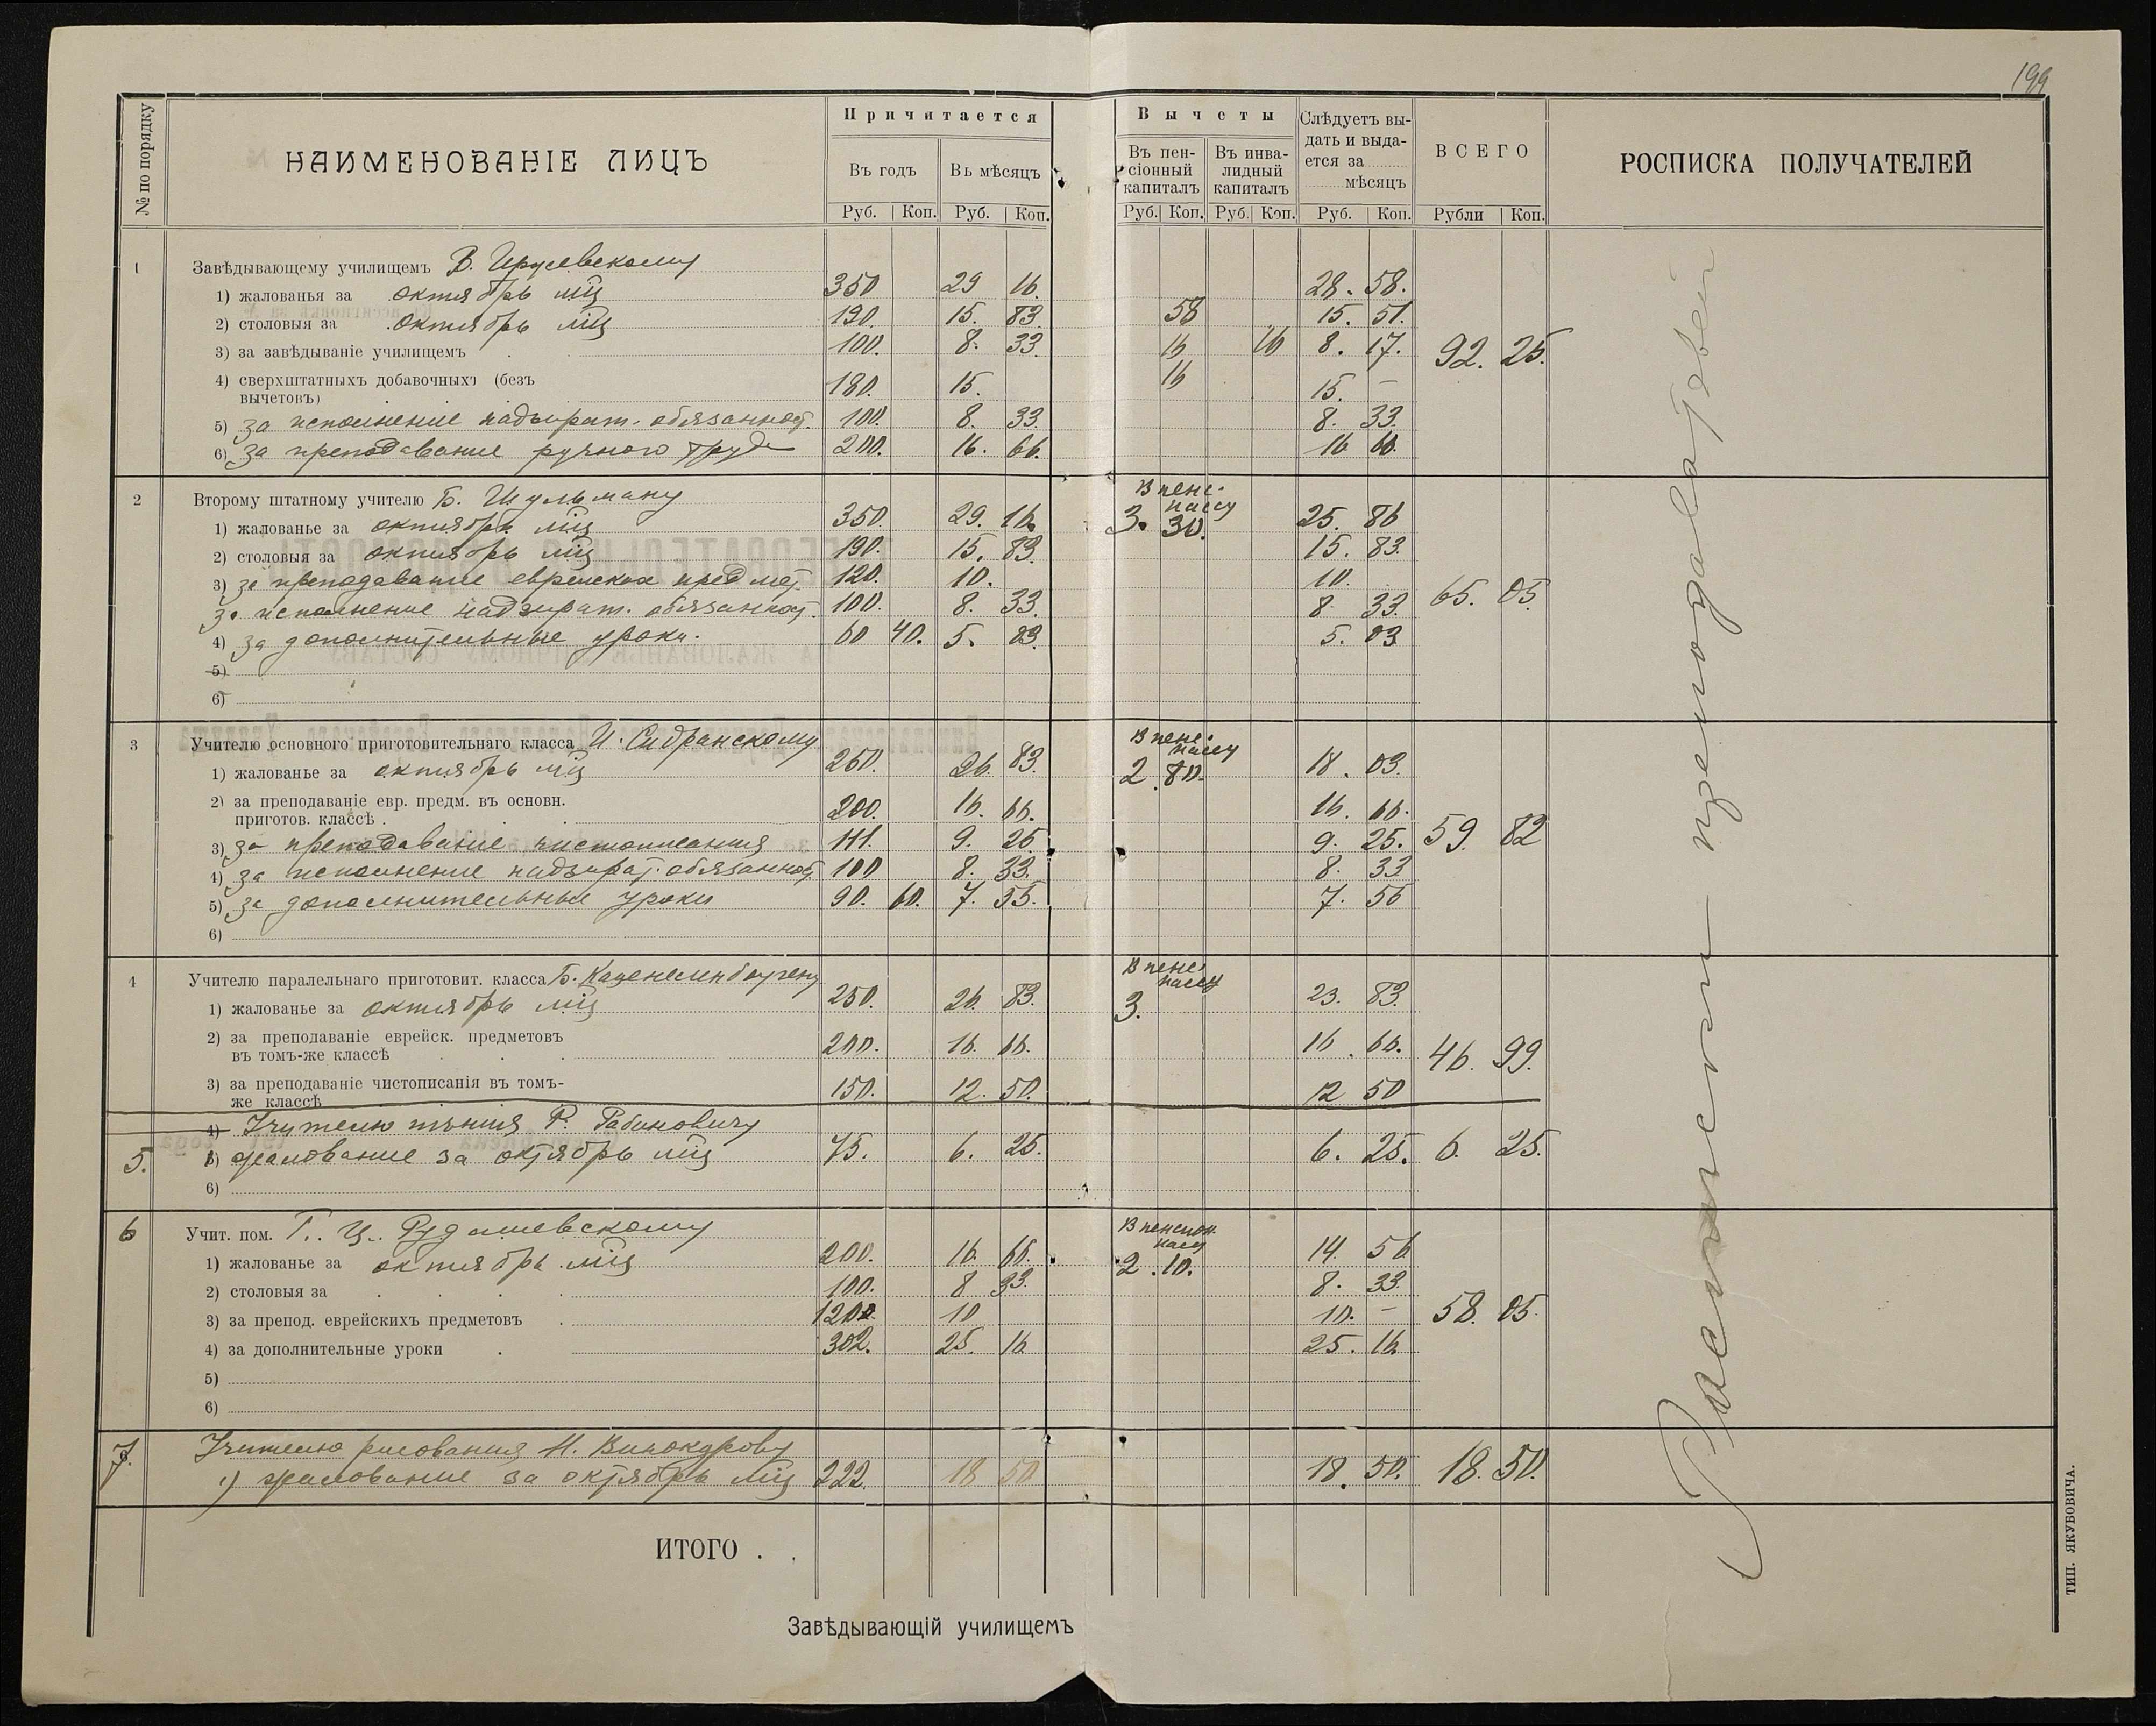 199
№ по порядку
НАИМЕНОВАНІЕ ЛИЦЪ
Причитается
Въ годъ
Въ мѣсяцъ
Руб. Коп. Руб. Коп.
Вычеты
Въ пен-
сіонный
капиталъ
Въ инва-
лидный
капиталъ
Руб. Коп. Руб. Коп.
Слѣдуетъ вы-
дать и выда-
ется за
мѣсяцъ
Руб. Коп.
ВСЕГО
Рубли Коп.
РОСПИСКА ПОЛУЧАТЕЛЕЙ
1 Завѣдывающему училищемъ В.
1) жалованья за октябрь мц 350 29 16. 28. 58.
2) столовыя за октябрь мц 190. 15. 83. 58 15. 51.
3) за завѣдываніе училищемъ 100. 8. 33. 16 16 8. 17. 92. 25.
4) сверхштатныхъ добавочныхъ (безъ 16
вычетовъ) 180. 15. 15. —
5) за исполнение надзират. обязанност. 100. 8. 33. 8. 33.
6) за преподавание ручного труда 200. 16. 66. 16 66.
2 Второму штатному учителю Б. Шульману В пенс.
кассу
1) жалованье за октябрь мц 350. 29. 16. 3. 30. 25. 86
2) столовыя за октябрь мц 190. 15. 83. 15. 83.
3) за преподавание еврейских предмет. 120. 10. 10.
за исполнение надзират. обязанност. 100. 8. 33. 8. 33. 65. 05.
4) за дополнительные уроки. 60 40. 5. 03. 5. 03
5)
6)
3 Учителю основного приготовительнаго класса И. Сидранскому В пенс.
кассу
1) жалованье за октябрь мц 250. 26. 83. 2. 80. 18. 03.
2) за преподаваніе евр. предм. въ основн.
приготов. классѣ 200. 16. 66. 16. 66.
3) за преподавание чистописания 111. 9. 25. 9. 25. 59. 82
4) за исполнение надзират. обязанност. 100 8. 33. 8. 33
5) за дополнительные уроки 90. 60. 7. 55. 7. 55
6)
4 Учителю паралельнаго приготовит. класса Б. Каценеленбогену В пенс.
кассу
1) жалованье за октябрь мц 250. 26. 83. 3. 23. 83.
2) за преподаваніе еврейск. предметовъ
въ томъ-же классѣ 200. 16. 66. 16. 66. 46. 99.
3) за преподаваніе чистописанія въ томъ-
же классѣ 150. 12. 50. 12 50
4) Учителю пѣния Р. Рабиновичу
5. 5) жалование за октябрь мц 75. 6. 25. 6. 25. 6. 25.
6)
6 Учит. пом. Г. Ц. Рудашевскому В пенсион.
касу
1) жалованье за октябрь мц 200. 16. 66. 2. 10. 14. 56
2) столовыя за 100. 8 33. 8. 33.
3) за препод. еврейскихъ предметовъ 120 10 10. — 58. 05.
4) за дополнительные уроки 302. 25. 16 25. 16.
5)
6)
7. Учителю рисования Н. Винокурову
1) жалование за октябрь мц 222. 18 50 18. 50. 18. 50.
ИТОГО
Завѣдывающій училищемъ
ТИП. ЯКУБОВИЧА.